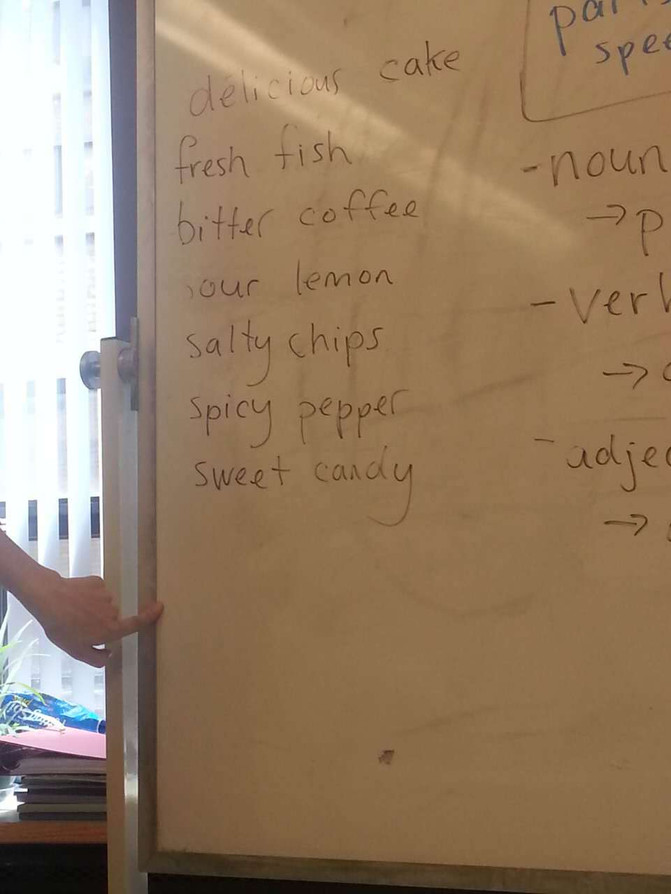 delicious cake
fresh fish
bitter coffee
our lemon
salty chips
spicy pepper
sweet candy
par
spee
- noun
→ p
- verb
→
- adjec
→